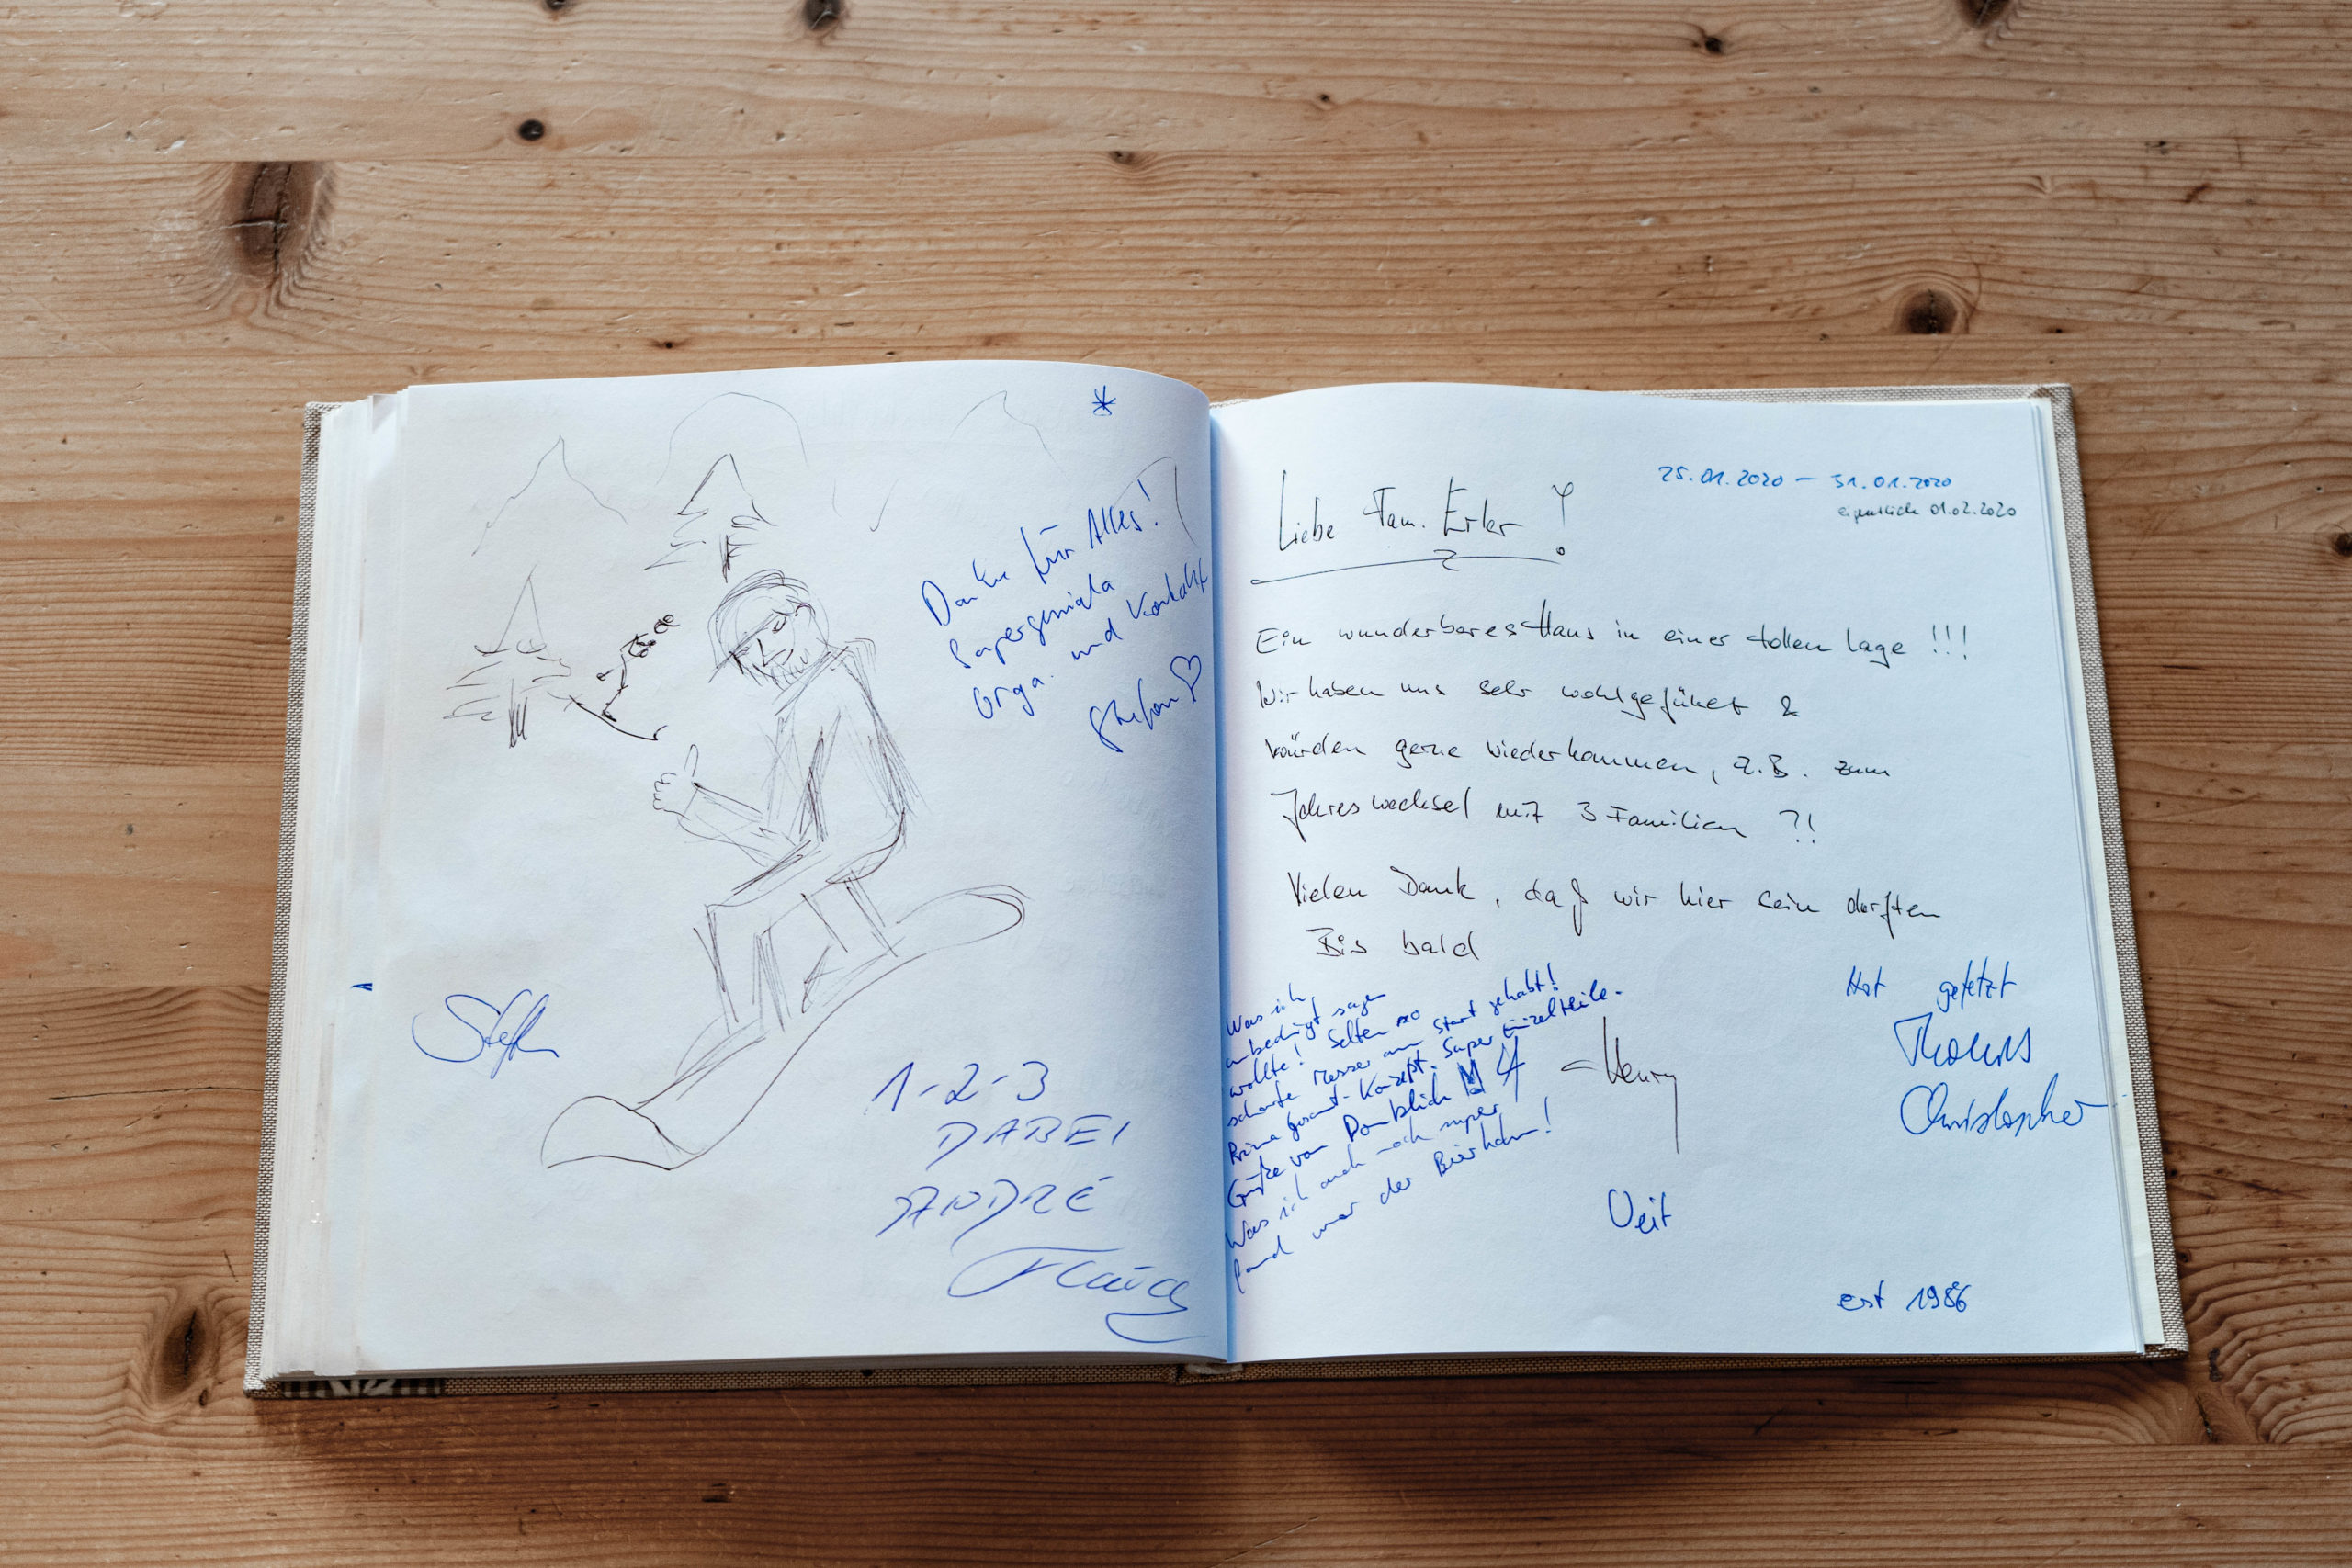 *
Danke für Alles!
Supergeniale
Orga. und Kontakt
Stefan
Stefan
1-2-3
DABEI
ANDRÉ
25.01.2020 – 31.01.2020
eigentlich 01.02.2020
Liebe Fam. Erler!
Ein wunderbares Haus in einer tollen Lage !!!
Wir haben uns sehr wohlgefühlt &
würden gerne wiederkommen, z.B. zum
Jahreswechsel mit 3 Familien ?!
Vielen Dank, daß wir hier sein durften
Bis bald
Was ich
unbedingt sagen
wollte! Selten so
scharfe Messer am Start gehabt!
Prima Gesamt-Konzept. Super Einzelteile.
Grüße von
Was ich auch noch super
fand war der Bierhahn!
– Henry
Hat gefetzt
Thomas
Christopher
Veit
est 1986